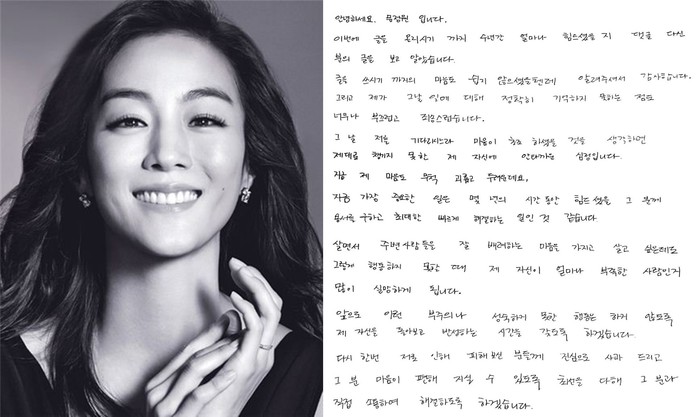 안녕하세요. 문정원 입니다.
이번에 글을 올리시기 까지 수년간 얼마나 힘드셨을 지 댓글 다신
분의 글을 보고 알았습니다.
글을 쓰시기 까지의 마음도 쉽지 않으셨을텐데 알려주셔서 감사합니다.
그리고 제가 그날 일에 대해 정확히 기억하지 못하는 점도
너무나 부끄럽고 죄송스럽습니다.
그 날 저를 기다리시느라 마음이 초조 하셨을 것을 생각하면
제대로 챙기지 못한 제 자신에 안타까운 심정입니다.
지금 제 마음도 무척 괴롭고 두려운데요,
지금 가장 중요한 일은 몇 년의 시간 동안 힘드셨을 그 분께
용서를 구하고 최대한 빠르게 해결하는 일인 것 같습니다
살면서 주변 사람들을 잘 배려하는 마음을 가지고 살고 싶은데도
그렇게 행동하지 못한 때에 제 자신이 얼마나 부족한 사람인지
많이 실망하게 됩니다.
앞으로 이런 부주의나 성숙하지 못한 행동은 하지 않도록
제 자신을 돌아보고 반성하는 시간을 갖도록 하겠습니다.
다시 한번 저로 인해 피해 보신 분들께 진심으로 사과 드리고
그 분 마음이 편해 지실 수 있도록 최선을 다해 그 분과
직접 소통하며 해결하도록 하겠습니다.